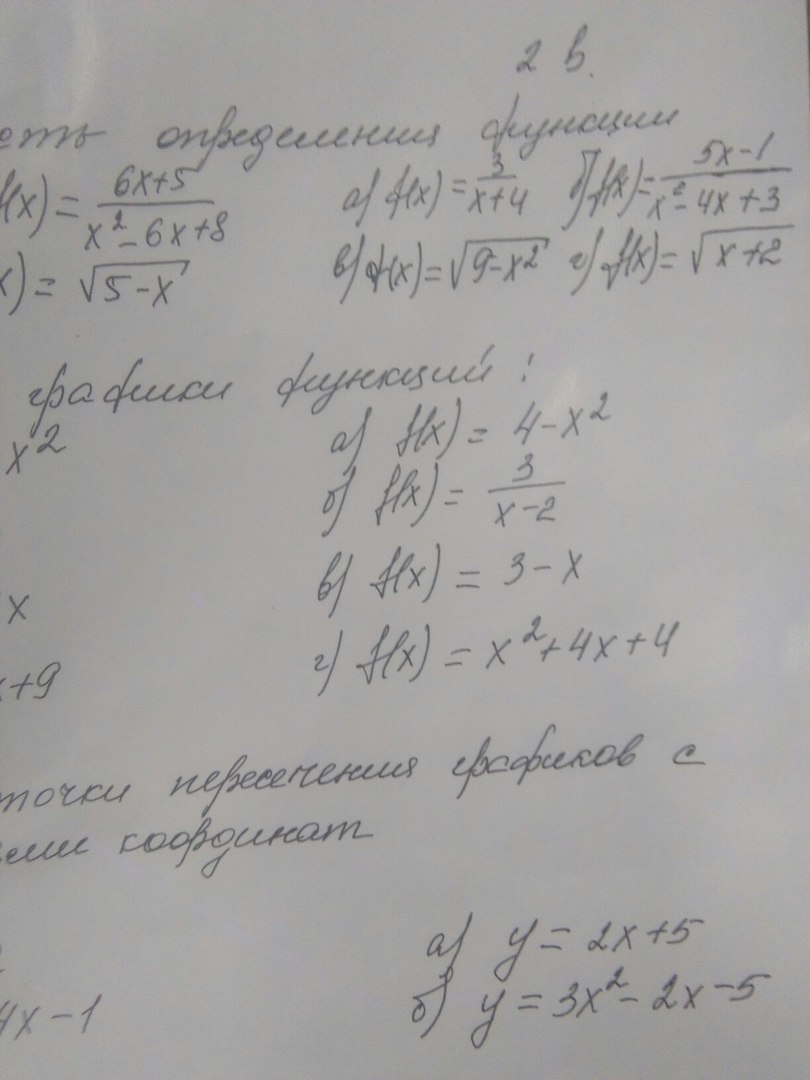 2 в.
есть определения функции
f(x) = (6x+5)/(x²-6x+8) а) f(x) = 3/(x+4) б) f(x) = (5x-1)/(x²-4x+3)
x) = √(5-x) в) f(x) = √(9-x²) г) f(x) = √(x+2)
графики функций:
x² а) f(x) = 4-x²
б) f(x) = 3/(x-2)
x в) f(x) = 3-x
x+9 г) f(x) = x²+4x+4
точки пересечения графиков с
ями координат
а) y = 2x+5
4x-1 б) y = 3x²-2x-5